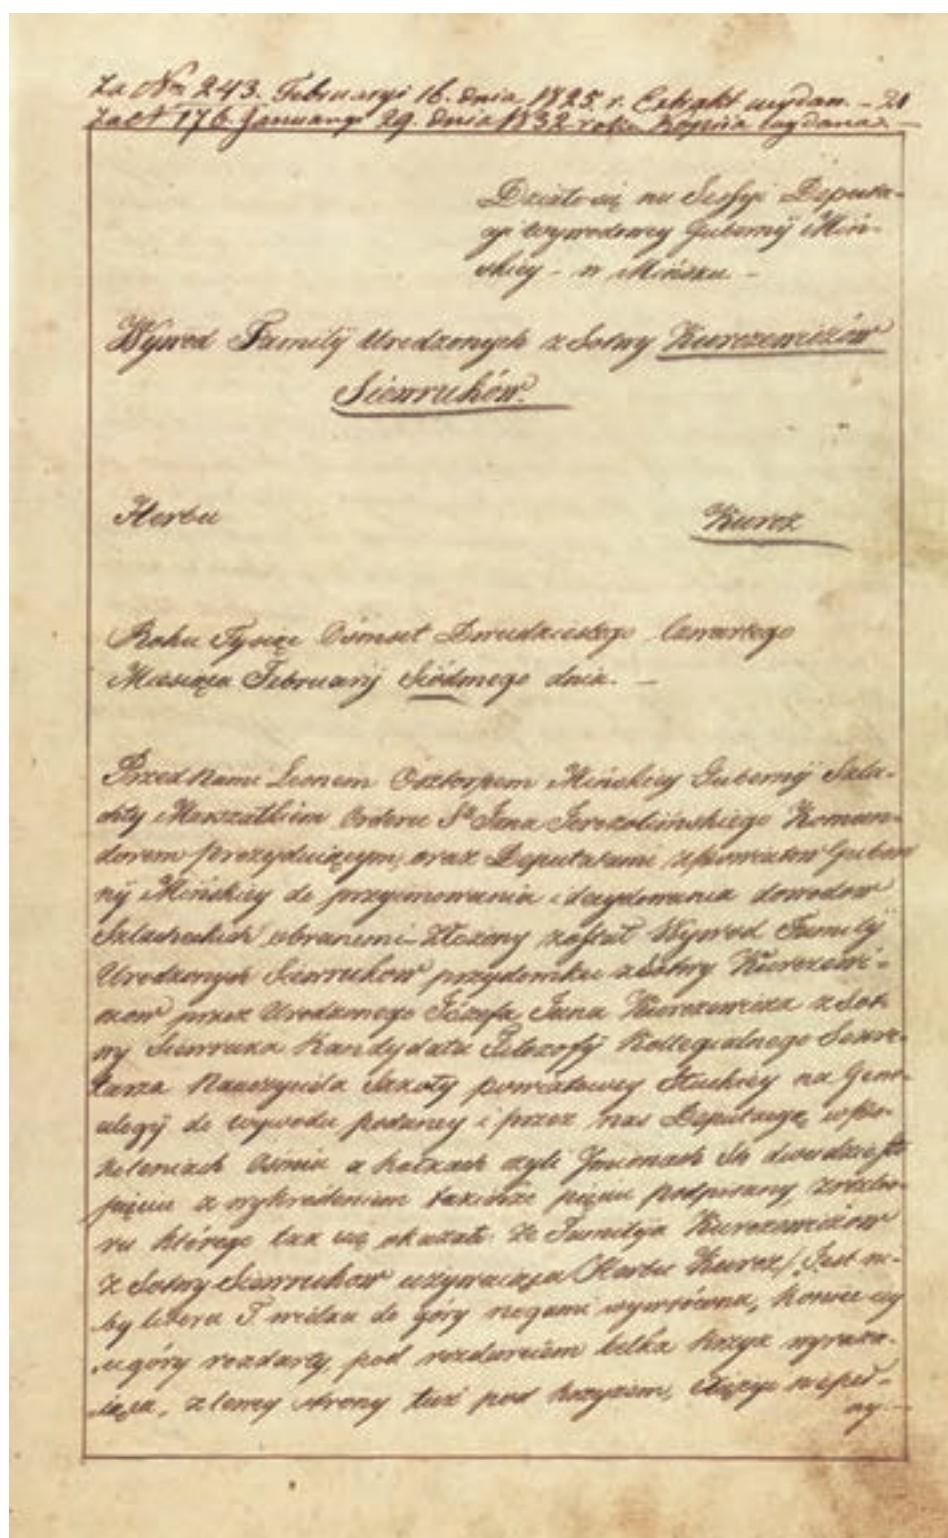 Za Nm 243. Februaryi 16. dnia 1825. r. Extrakt wydan. - 21
Za N 176. January 29. dnia 1832 roku Kopiia wydana. -
Działo się na Sessyi Deputa-
cyi wywodowey Gubernij Miń-
skiey - w Mińsku -
Wywod Familij Urodzonych z Sotny Kurczewiczów
Siewruków.
Herbu Kurcz
Roku Tysiąc Ośmset Dwudziestego Czwartego
Miesiąca Februarij Siódmego dnia. -
Przed Nami Leonem Osztorpem Mińskiey Gubernij Szla-
chty Marszałkiem Orderu Sº Jana Jerozolimskiego Koman-
dorem prezyduiącym, oraz Deputatami z powiatow Guber
nij Mińskiey do przyimowania i decydowania dowodow
Szlacheckich obranemi - Złożony został Wywod Familij
Urodzonych Siewrukow przydomku z Sotny Kurczewi-
czow przez Urodzonego Józefa Jana Kurczewicza z Sot-
ny Siewruka Kandydata Filozofij Kollegialnego Sekre-
tarza Nauczyciela Szkoły powiatowey Słuckiey na Gene-
alogij do wywodu podaney i przez nas Deputacyą w po-
koleniach Ośmiu a katzach czyli Jmionach Sto dwudziestu
pięciu z wykreśleniem takimże pięciu podpisany, z rozbio-
ru którego tak się okazało. Że Familija Kurczewiczow
z Sotny Siewrukow używaiąca Herbu Kurcz / Jest ni-
by litera T. wielka do gory nogami wywrócona, koniec iey
u góry rozdarty, pod rozdarciem belka krzyż wyraża-
iąca, z lewey strony tuż pod krzyżem, xiężyc niepeł-
ny -